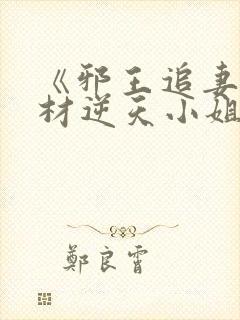 《邪王追妻
材逆天小姐
鄭良霄